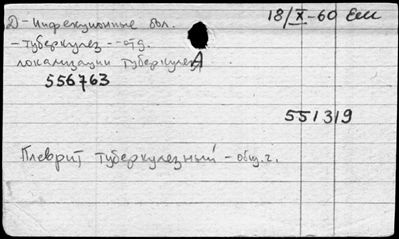 Д-Инфекционные бол. 18/X-60
- туберкулез - отд.
локализации туберкулеза
556763
551319
Плеврит туберкулезный - общ. ч.